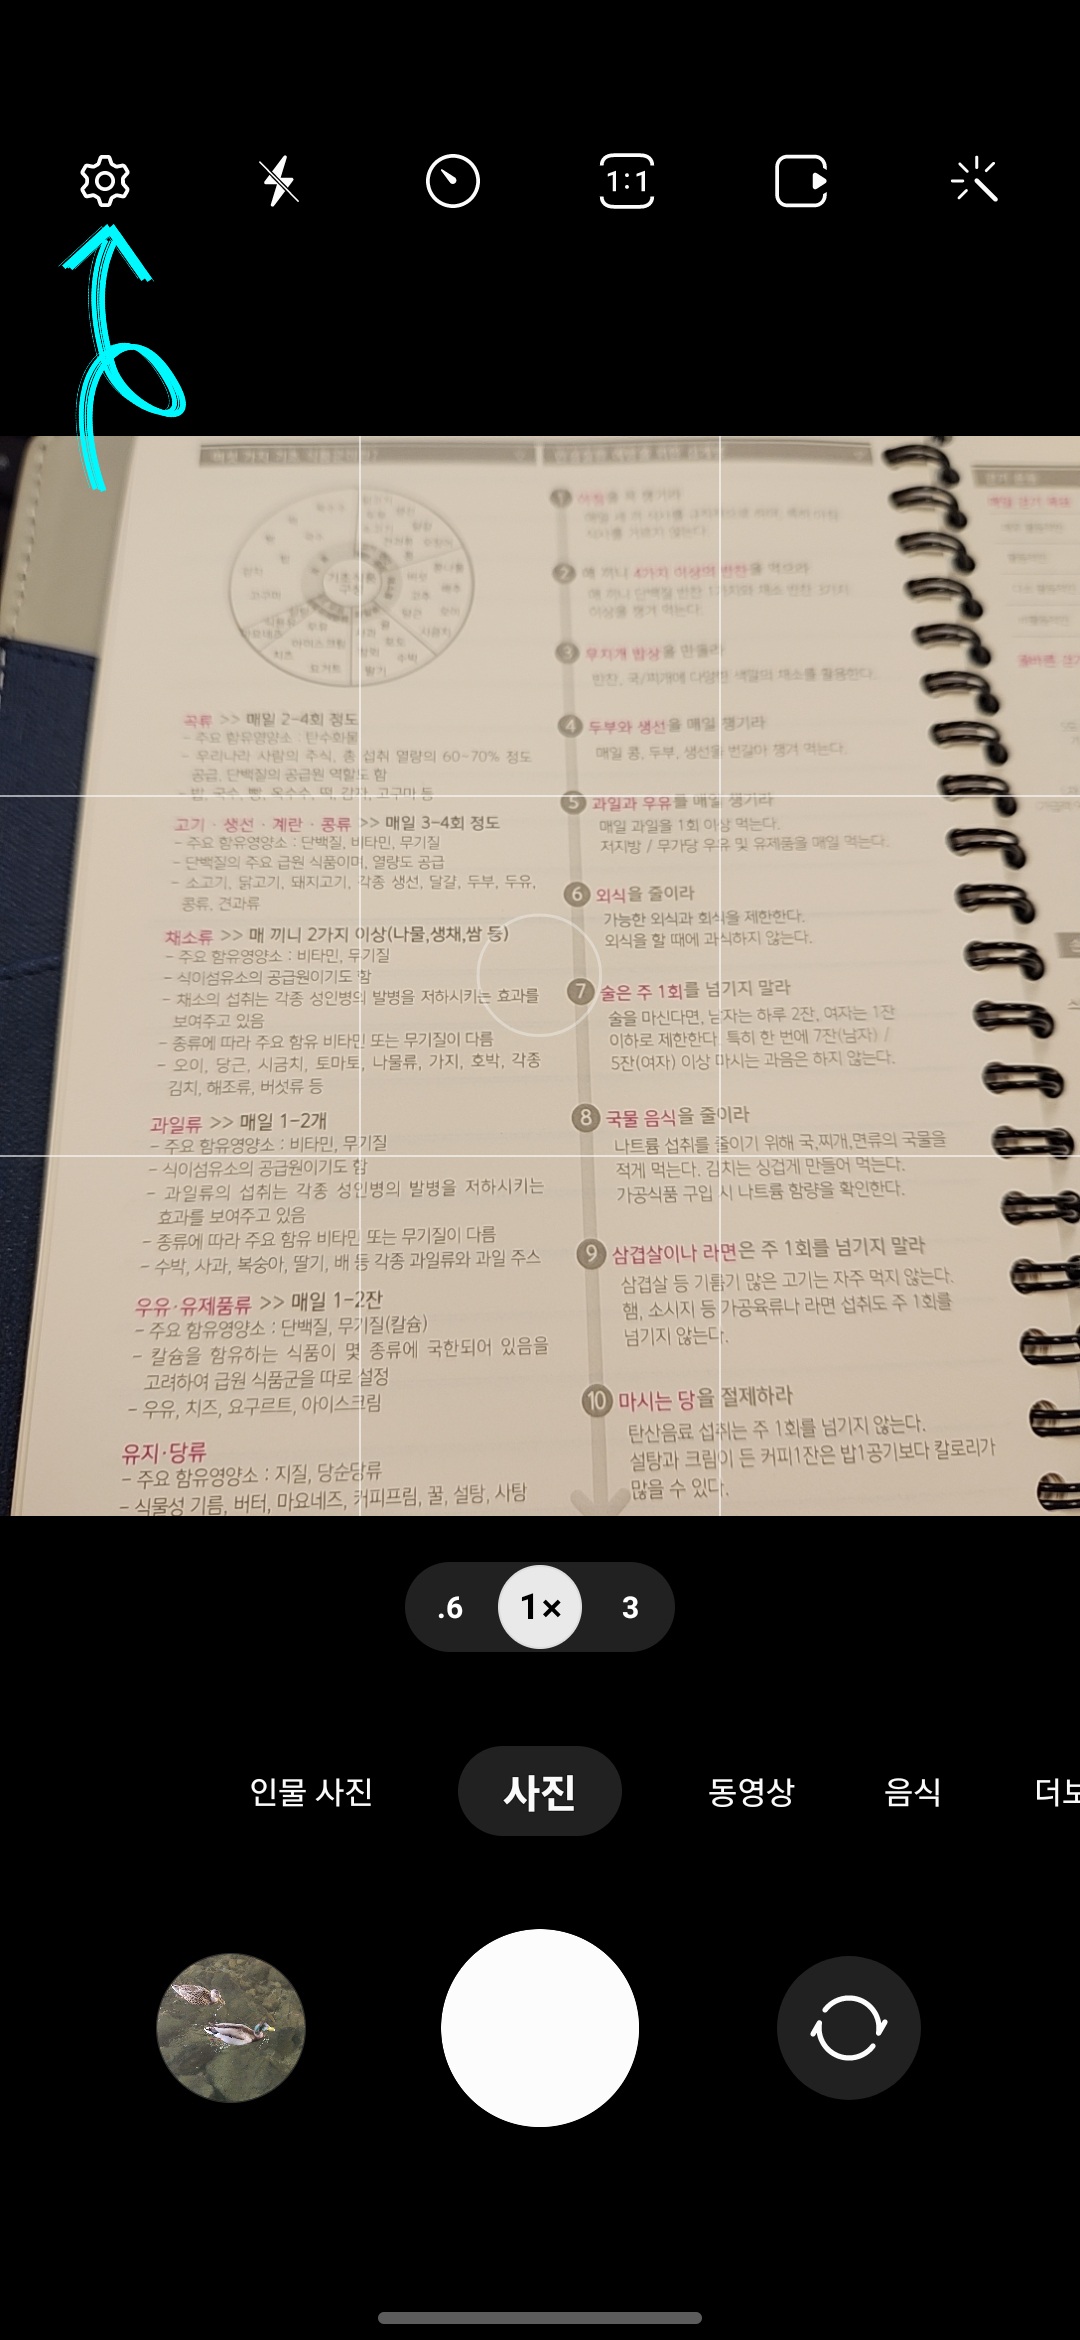 1:1
여섯 가지 기초 식품군이란?
기초식품
구성
곡류 >> 매일 2-4회 정도
- 주요 함유영양소 : 탄수화물
- 우리나라 사람의 주식, 총 섭취 열량의 60-70% 정도
공급, 단백질의 공급원 역할도 함
- 밥, 국수, 빵, 옥수수, 떡, 감자, 고구마 등
고기 · 생선 · 계란 · 콩류 >> 매일 3-4회 정도
- 주요 함유영양소 : 단백질, 비타민, 무기질
- 단백질의 주요 급원 식품이며, 열량도 공급
- 소고기, 닭고기, 돼지고기, 각종 생선, 달걀, 두부, 두유,
콩류, 견과류
채소류 >> 매 끼니 2가지 이상(나물,생채,쌈 등)
- 주요 함유영양소 : 비타민, 무기질
- 식이섬유소의 공급원이기도 함
- 채소의 섭취는 각종 성인병의 발병을 저하시키는 효과를
보여주고 있음
- 종류에 따라 주요 함유 비타민 또는 무기질이 다름
- 오이, 당근, 시금치, 토마토, 나물류, 가지, 호박, 각종
김치, 해조류, 버섯류 등
과일류 >> 매일 1-2개
- 주요 함유영양소 : 비타민, 무기질
- 식이섬유소의 공급원이기도 함
- 과일류의 섭취는 각종 성인병의 발병을 저하시키는
효과를 보여주고 있음
- 종류에 따라 주요 함유 비타민 또는 무기질이 다름
- 수박, 사과, 복숭아, 딸기, 배 등 각종 과일류와 과일 주스
우유·유제품류 >> 매일 1-2잔
- 주요 함유영양소 : 단백질, 무기질(칼슘)
- 칼슘을 함유하는 식품이 몇 종류에 국한되어 있음을
고려하여 급원 식품군을 따로 설정
- 우유, 치즈, 요구르트, 아이스크림
유지·당류
- 주요 함유영양소 : 지질, 당순당류
- 식물성 기름, 버터, 마요네즈, 커피프림, 꿀, 설탕, 사탕
1 아침을 꼭 챙기라
2 매 끼니 4가지 이상의 반찬을 먹으라
매 끼니 단백질 반찬 1가지와 채소 반찬 3가지
이상을 챙겨 먹는다.
3 무지개 밥상을 만들라
반찬, 국/찌개에 다양한 색깔의 채소를 활용한다.
4 두부와 생선을 매일 챙기라
매일 콩, 두부, 생선을 번갈아 챙겨 먹는다.
5 과일과 우유를 매일 챙기라
매일 과일을 1회 이상 먹는다.
저지방 / 무가당 우유 및 유제품을 매일 먹는다.
6 외식을 줄이라
가능한 외식과 회식을 제한한다.
외식을 할 때에 과식하지 않는다.
7 술은 주 1회를 넘기지 말라
술을 마신다면, 남자는 하루 2잔, 여자는 1잔
이하로 제한한다. 특히 한 번에 7잔(남자) /
5잔(여자) 이상 마시는 과음은 하지 않는다.
8 국물 음식을 줄이라
나트륨 섭취를 줄이기 위해 국,찌개,면류의 국물을
적게 먹는다. 김치는 싱겁게 만들어 먹는다.
가공식품 구입 시 나트륨 함량을 확인한다.
9 삼겹살이나 라면은 주 1회를 넘기지 말라
삼겹살 등 기름기 많은 고기는 자주 먹지 않는다.
햄, 소시지 등 가공육류나 라면 섭취도 주 1회를
넘기지 않는다.
10 마시는 당을 절제하라
탄산음료 섭취는 주 1회를 넘기지 않는다.
설탕과 크림이 든 커피1잔은 밥1공기보다 칼로리가
많을 수 있다.
.6 1× 3
인물 사진 사진 동영상 음식 더보